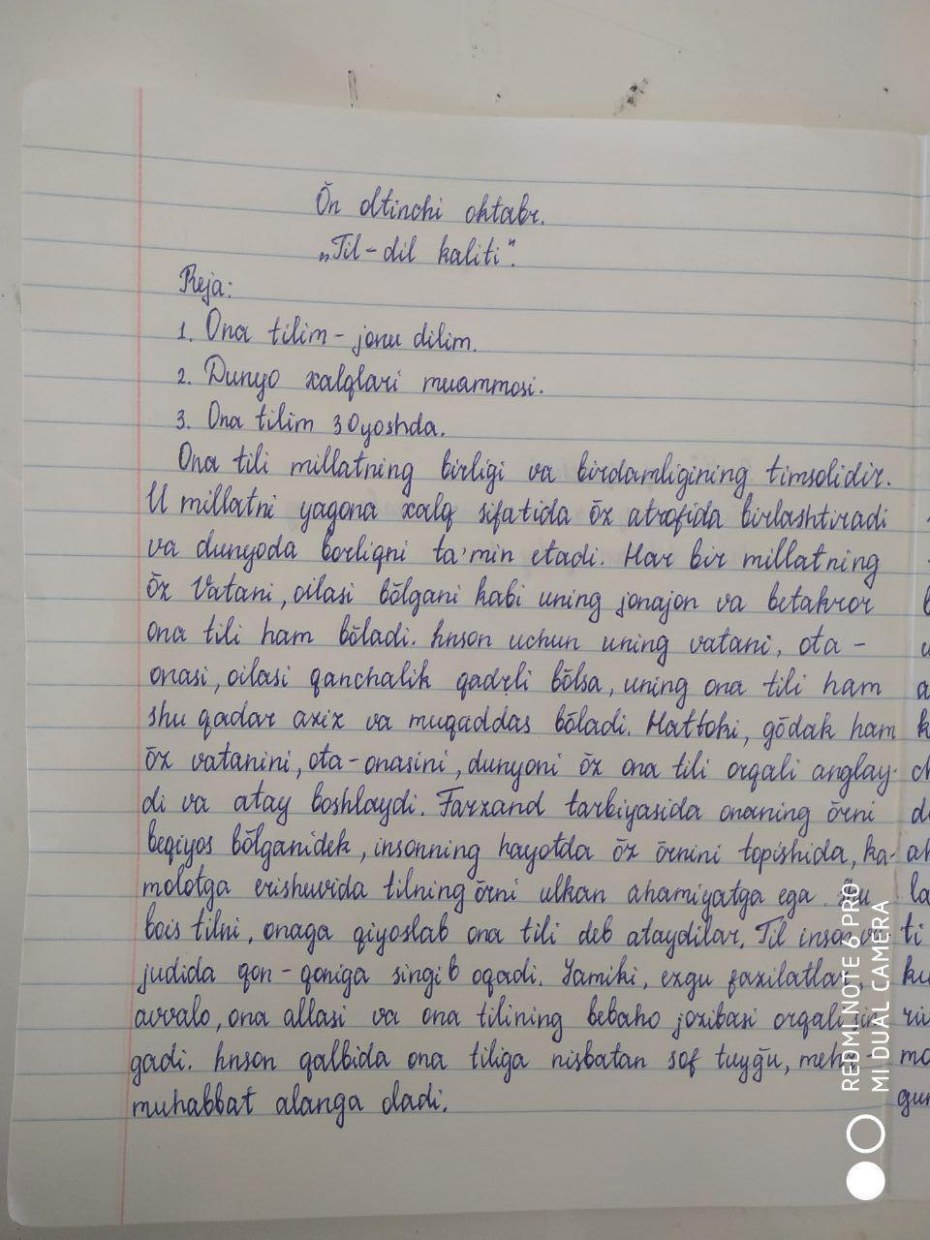 Ōn oltinchi oktabr.
„Til-dil kaliti".
Reja:
1. Ona tilim - jonu dilim.
2. Dunyo xalqlari muammosi.
3. Ona tilim 30 yoshda.
Ona tili millatning birligi va birdamligining timsolidir.
U millatni yagona xalq sifatida ōz atrofida birlashtiradi
va dunyoda borliqni ta'min etadi. Har bir millatning
ōz Vatani, oilasi bōlgani kabi uning jonajon va betakror
ona tili ham bōladi. Inson uchun uning vatani, ota-
onasi, oilasi qanchalik qadrli bōlsa, uning ona tili ham
shu qadar aziz va muqaddas bōladi. Hattoki, gōdak ham
ōz vatanini, ota-onasini, dunyoni ōz ona tili orqali anglay-
di va atay boshlaydi. Farzand tarbiyasida onaning ōrni
beqiyos bōlganidek, insonning hayotda ōz ōrnini topishida, ka-
molotga erishuvida tilning ōrni ulkan ahamiyatga ega. Shu
bois tilni, onaga qiyoslab ona tili deb ataydilar. Til inson vu
judida qon-qoniga singib oqadi. Yamiki, ezgu fazilatlar,
avvalo, ona allasi va ona tilining bebaho jozibasi orqali sin
gadi. Inson qalbida ona tiliga nisbatan sof tuyğu, mehr-
muhabbat alanga oladi.
REDMI NOTE 6 PRO
MI DUAL CAMERA